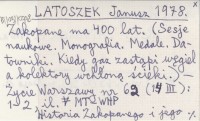 LATOSZEK Janusz 1978.
Zakopane ma 400 lat. (Sesje
naukowe. Monografia. Medale. Da-
towniki. Kiedy gaz zastąpi węgiel
a kolektory wchłoną ścieki.) —
Życie Warszawy nr 62 (14 III):
1-2 il. # MTQWHP
Historia Zakopanego i jego